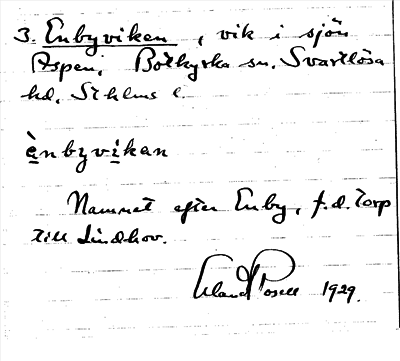 3. Enbyviken, vik i sjön
Aspen, Botkyrka sn, Svartlösa
hd, Sthlms l.
ènbyvikan
Namnet efter Enby, f.d. torp
till Lindhov.
Erland Rosell 1929.